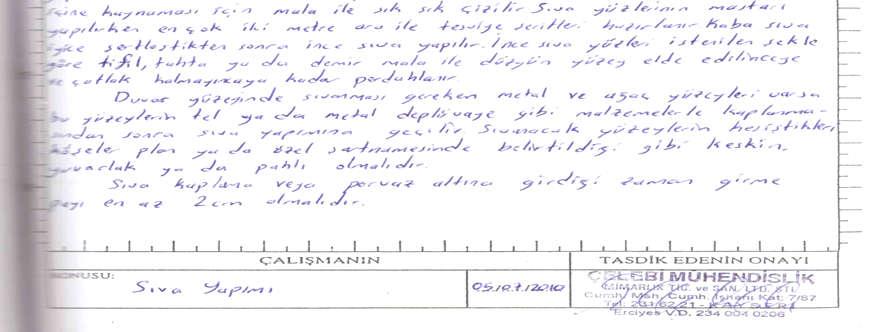 içine kaynaması için mala ile sık sık çizilir. Sıva yüzlerinin mastarı
yapılırken en çok iki metre ara ile tesviye şeritleri hazırlanır. Kaba sıva
iyice sertleştikten sonra ince sıva yapılır. İnce sıva yüzleri istenilen şekle
göre tifil, tahta ya da demir mala ile düzgün yüzey elde edilinceye
ve çatlak kalmayıncaya kadar perdahlanır.
Duvar yüzeyinde sıvanması gereken metal ve ağaç yüzeyleri varsa
bu yüzeylerin tel ya da metal depluvaye gibi malzemelerle kaplanma-
sından sonra sıva yapımına geçilir. Sıvanacak yüzeylerin kesiştikleri
köşeler plan ya da özel şartnamesinde belirtildiği gibi keskin,
yuvarlak ya da pahlı olmalıdır.
Sıva kaplama veya pervaz altına girdiği zaman girme
payı en az 2cm olmalıdır.
ÇALIŞMANIN
TASDİK EDENİN ONAYI
KONUSU:
Sıva Yapımı
05.10.7.12010
ÇELEBİ MÜHENDİSLİK
MİMARLIK TİC. ve SAN. LTD. ŞTİ.
Cumh. Mah. Cumh. İşhanı Kat: 7/87
Tel: 231 62 21 - KAYSERİ
Erciyes V.D. 234 004 0206